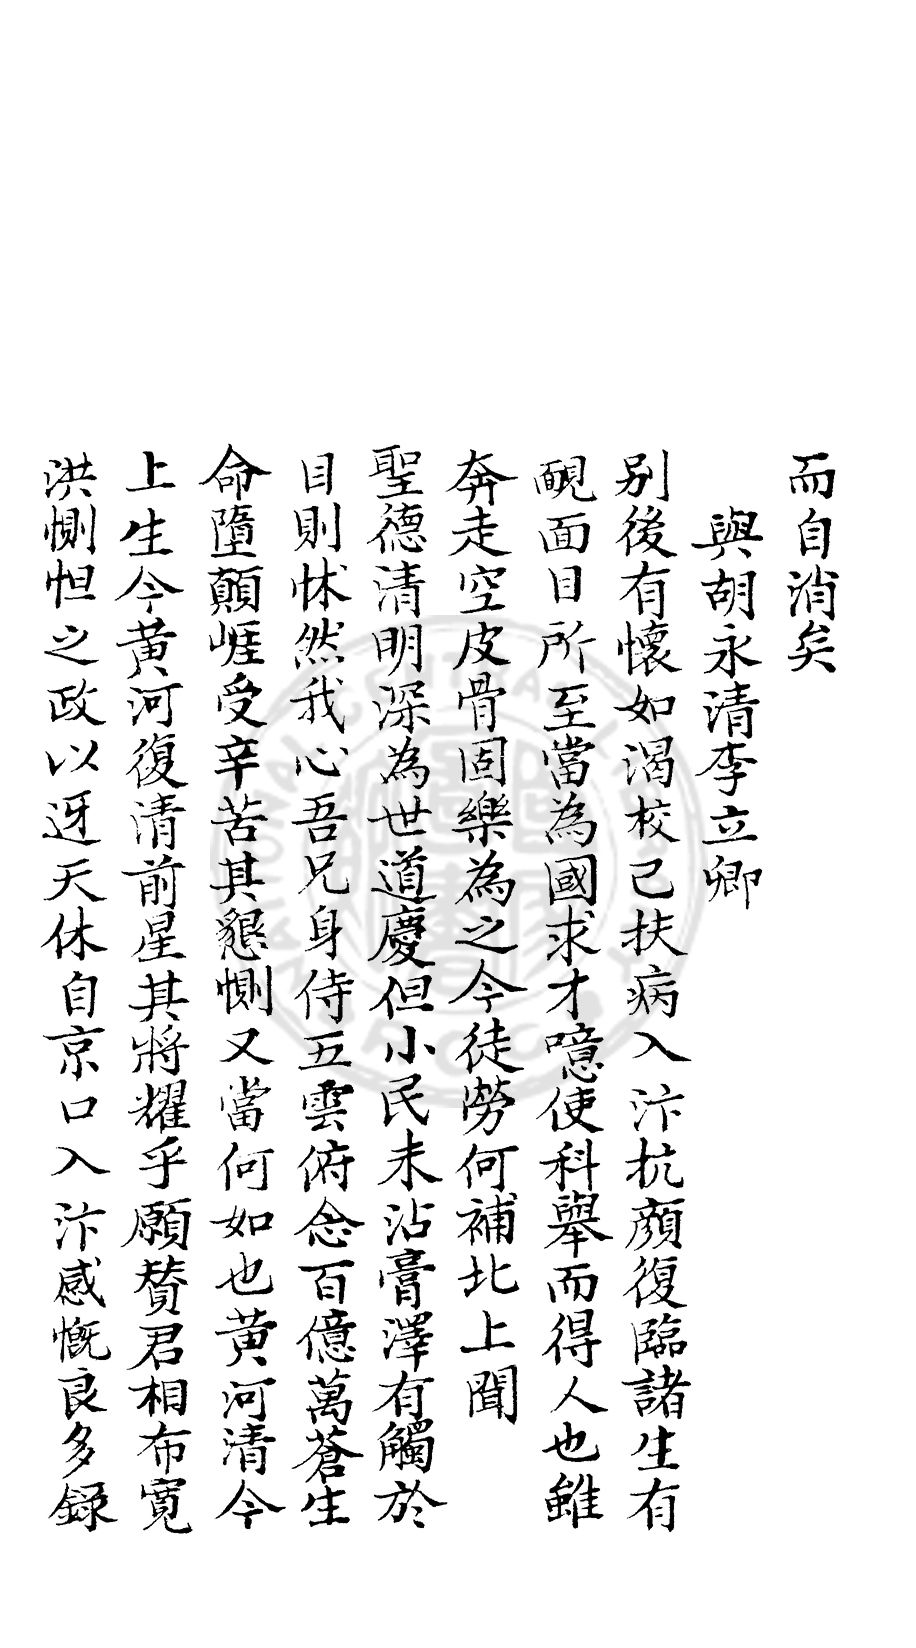 而自消矣
與胡永清李立卿
別後有懷如渴校已扶病入汴抗顏復臨諸生有
靦面目所至當為國求才噫使科舉而得人也雖
奔走空皮骨固樂為之今徒勞何補北上聞
聖德清明深為世道慶但小民未沾膏澤有觸於
目則怵然我心吾兄身侍五雲俯念百億萬蒼生
命墮顛崕受辛苦其懇惻又當何如也黄河清今
上生今黄河復清前星其將耀乎願賛君相布寛
洪惻怛之政以迓天休自京口入汴感慨良多録